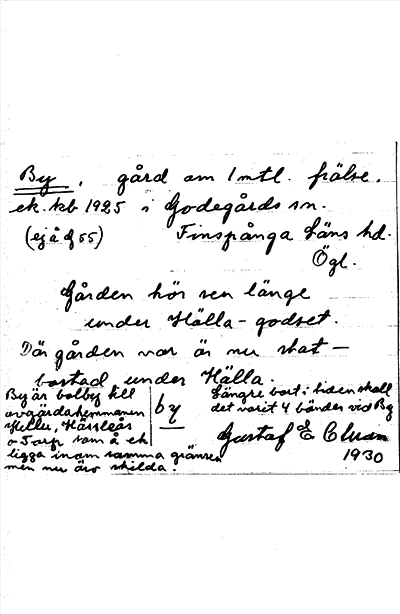 By, gård om 1 mtl. frälse.
ek. kb 1925 i Godegårds sn.
(ej å gf 55) Finspånga Läns hd.
Ögl.
Gården hör sen länge
under Hälla-godset.
Där gården var är nu stat-
bostad under Hälla.
By är bolby till
avgärdahemmanen
Heller, Hässleås
o Torp som å ek
ligga inom samma gränser
men nu äro skilda.
by
Längre bort i tiden skall
det varit 4 bönder vid By
Gustaf E
1930